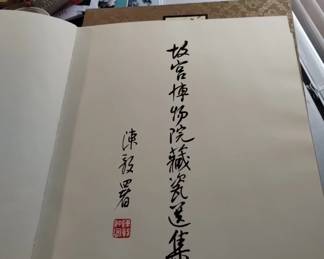 故宫博物院藏瓷选集
陈毅署